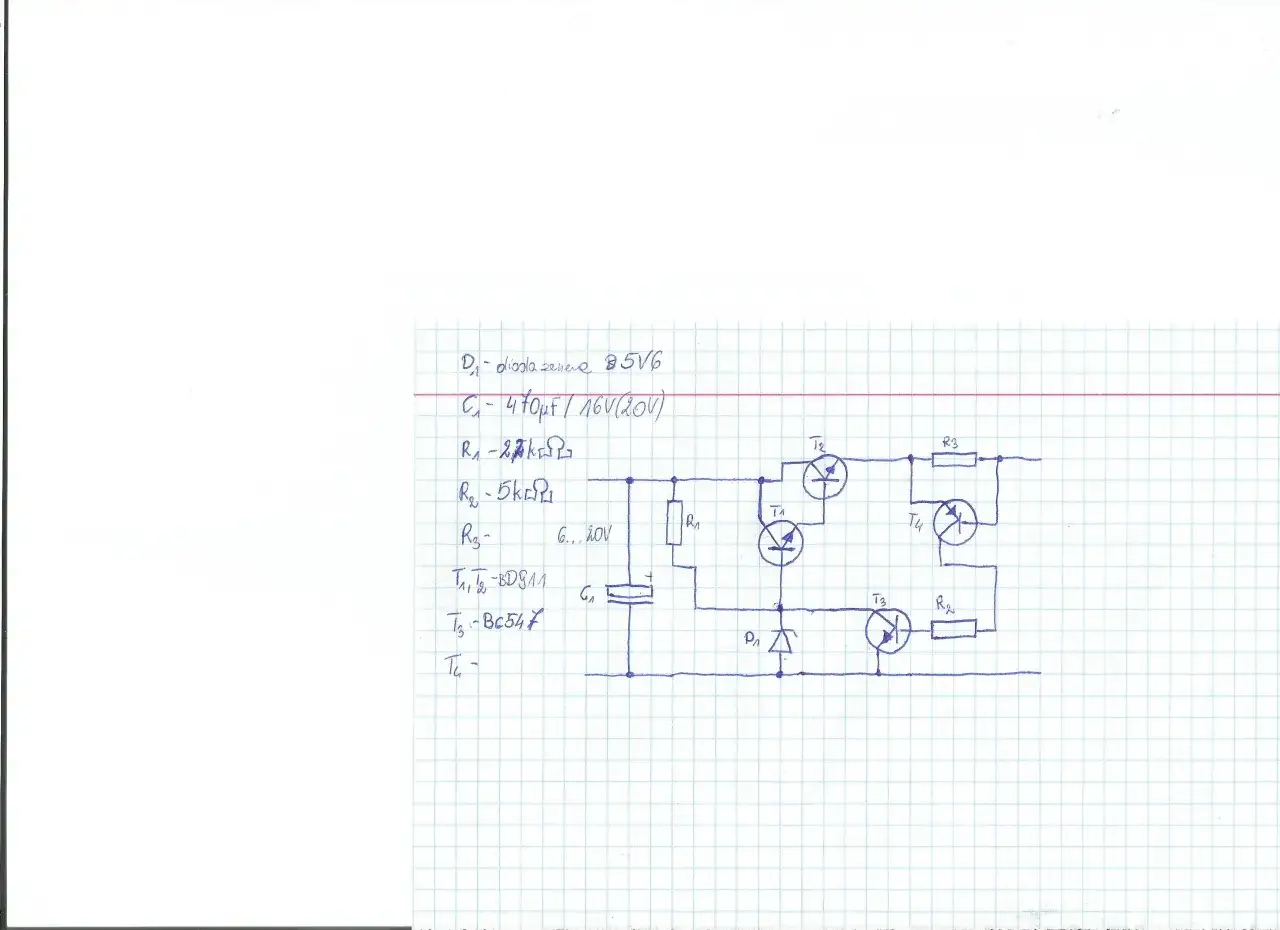 D1 - dioda zenera 5V6
C1 - 470µF / 16V(20V)
R1 - 22kΩ
R2 - 5kΩ
R3 -
T1, T2 - BD911
T3 - BC547
T4 -
6...20V
C1
R1
T1
T2
D1
T3
T4
R3
R2